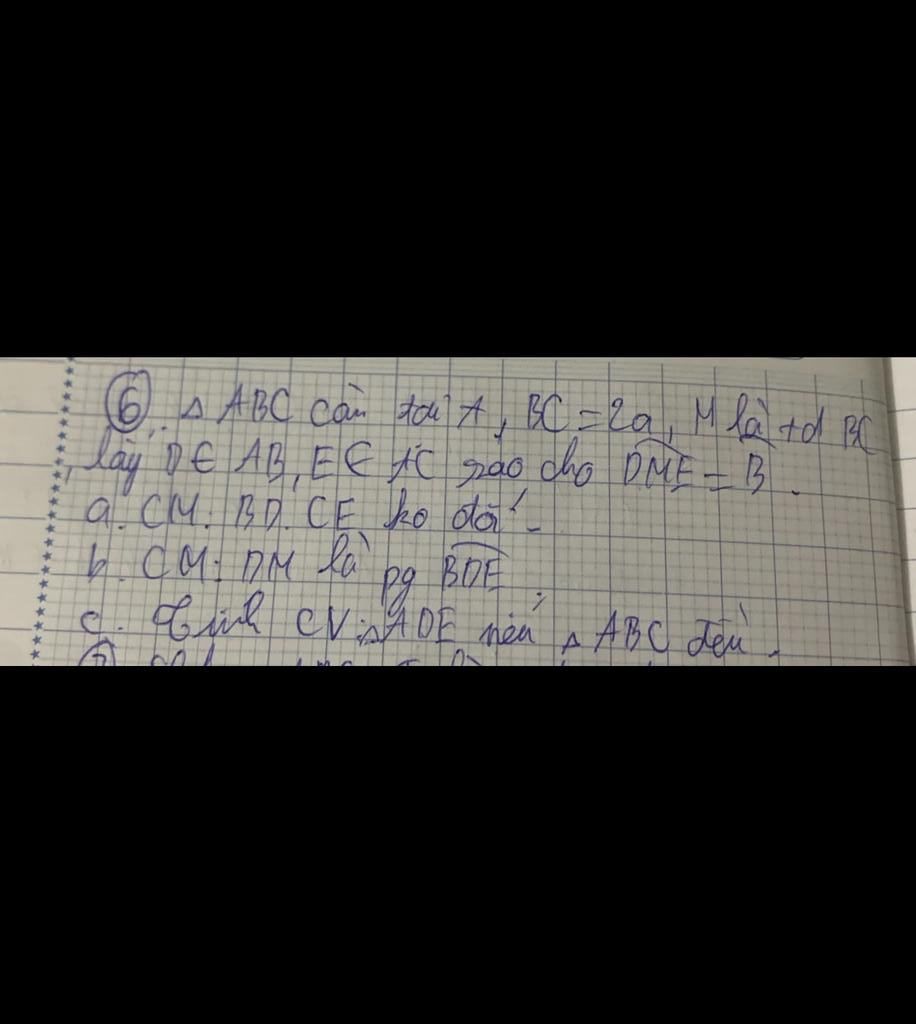 6. △ ABC cân tại A, BC = 2a, M là tđ BC
, lấy D ∈ AB, E ∈ AC sao cho DME = B.
a. CM: BD. CE ko đổi.
b. CM: DM là pg BDE.
c. Tính CV △ ADE nếu △ ABC đều.